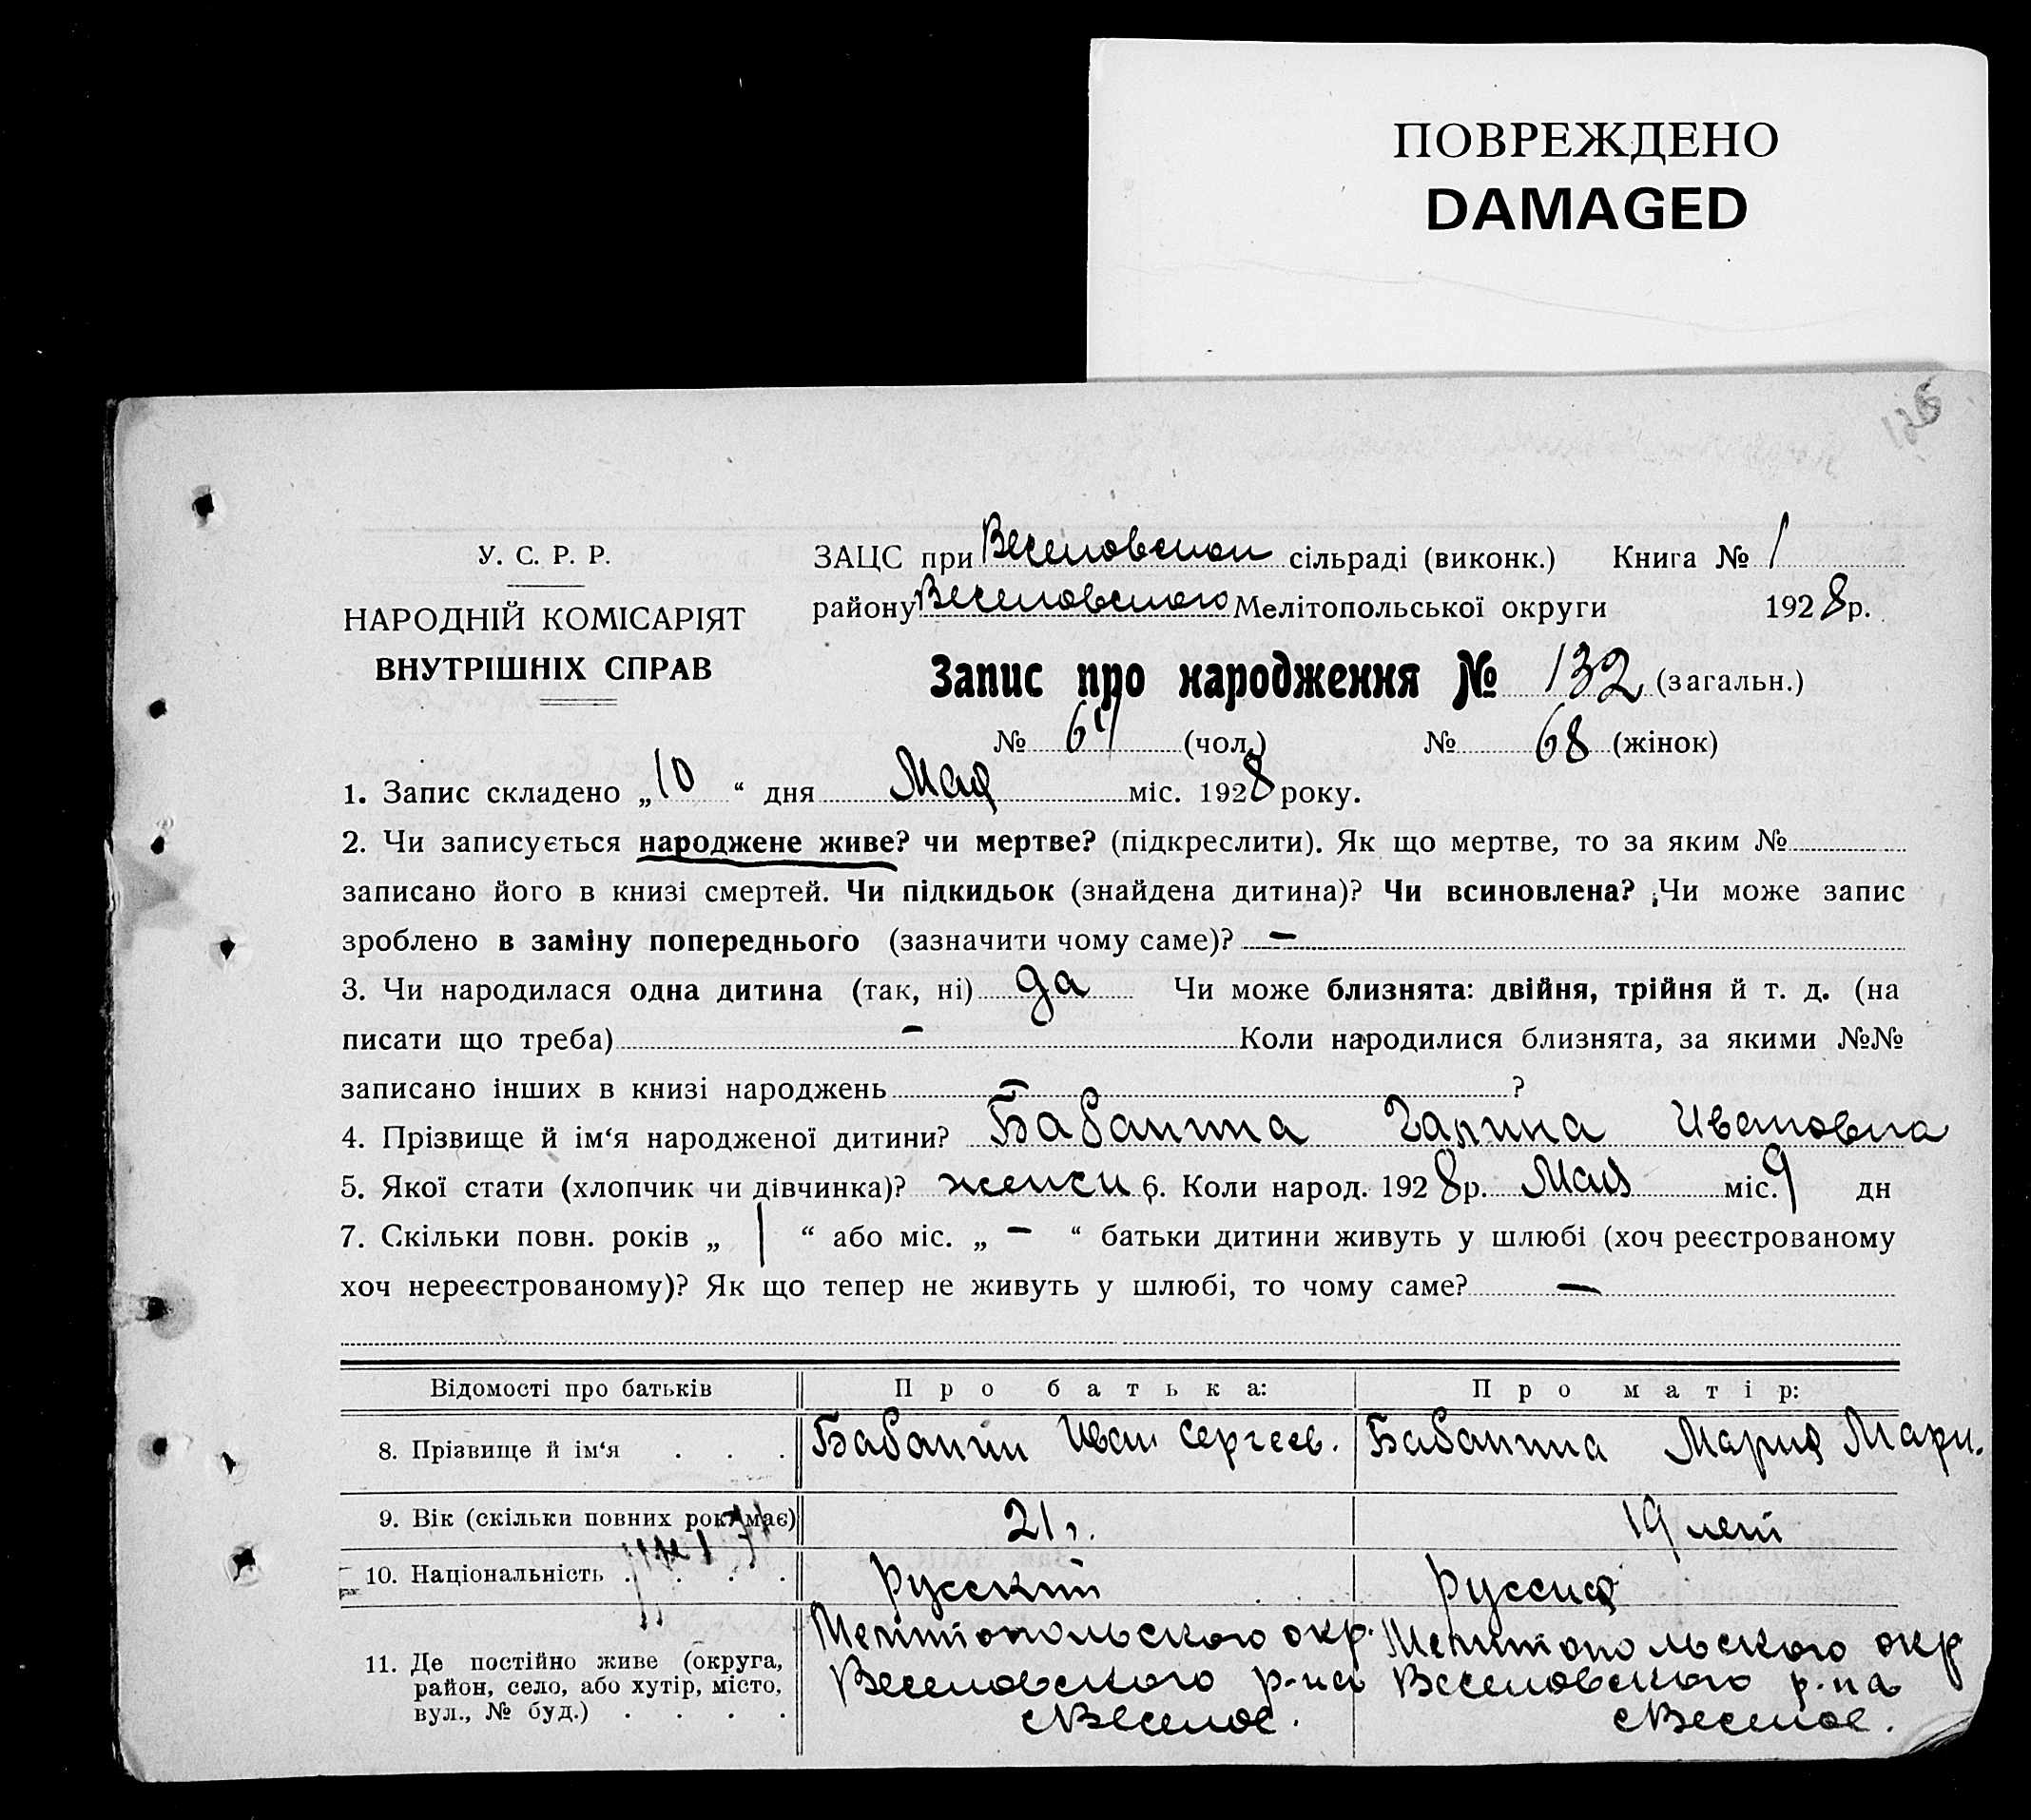 ПОВРЕЖДЕНО
DAMAGED
У. С. Р. Р.
НАРОДНІЙ КОМІСАРІЯТ
ВНУТРІШНІХ СПРАВ
ЗАЦС при Веселовском сільраді (виконк.) Книга № 1
району Веселовского Мелітопольської округи 1928 р.
Запис про народження № 132 (загальн.)
№ 64 (чол.) № 68 (жінок)
1. Запис складено „10“ дня Мая міс. 1928 року.
2. Чи записується народжене живе? чи мертве? (підкреслити). Як що мертве, то за яким №
записано його в книзі смертей. Чи підкидьок (знайдена дитина)? Чи всиновлена? Чи може запис
зроблено в заміну попереднього (зазначити чому саме)? —
3. Чи народилася одна дитина (так, ні) да Чи може близнята: двійня, трійня й т. д. (на
писати що треба) — Коли народилися близнята, за якими №№
записано інших в книзі народжень — ?
4. Прізвище й ім‘я народженої дитини? Бабанина Галина Ивановна
5. Якої стати (хлопчик чи дівчинка)? женск 6. Коли народ. 1928 р. Мая міс. 9 дн
7. Скільки повн. років „ 1 “ або міс. „ — “ батьки дитини живуть у шлюбі (хоч реєстрованому
хоч нереєстрованому)? Як що тепер не живуть у шлюбі, то чому саме? —
Відомості про батьків Про батька: Про матір:
8. Прізвище й ім‘я . . . Бабанин Иван Сергеев. Бабанина Мария Марк.
9. Вік (скільки повних рок. має) 21 г. 19 лет
10. Національність . . . . русский русская
11. Де постійно живе (округа, район, село, або хутір, місто, вул., № буд.) . . . .
Мелитопольского окр. Мелитопольского окр
Веселовского р-на Веселовского р-на
с Веселое. с Веселое.